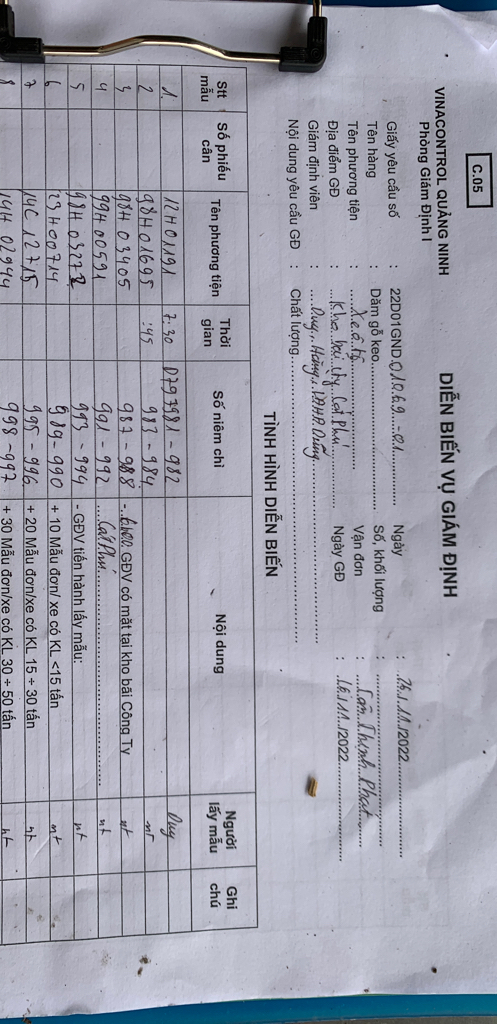 C.05
VINACONTROL QUẢNG NINH
Phòng Giám Định I
DIỄN BIẾN VỤ GIÁM ĐỊNH
Giấy yêu cầu số : 22D01GND.01069.-01 Ngày : 16/11/2022
Tên hàng : Dăm gỗ keo Số, khối lượng :
Tên phương tiện : Xe ô tô Vận đơn : Tân Thịnh Phát
Địa điểm GĐ : Kho bãi cty Cát Phú Ngày GĐ : 16/11/2022
Giám định viên : Duy, Hoàng,
Nội dung yêu cầu GĐ : Chất lượng
TÌNH HÌNH DIỄN BIẾN
Stt mẫu Số phiếu cân Tên phương tiện Thời gian Số niêm chì Nội dung Người lấy mẫu Ghi chú
1. 12H01191 7:30 079 7981 - 982 Duy
2 98H01695 :45 983 - 984 nt
3 98H03405 987 - 988 - GĐV có mặt tại kho bãi Công Ty nt
4 90H00591 991 - 992 Cát Phú nt
5 98H03272 993 - 994 - GĐV tiến hành lấy mẫu: nt
6 23H00714 989 - 990 + 10 Mẫu đơn/ xe có KL <15 tấn nt
7 14C12715 995 - 996 + 20 Mẫu đơn/xe có KL 15 ÷ 30 tấn nt
8 14H02944 998 - 997 + 30 Mẫu đơn/xe có KL 30 ÷ 50 tấn nt